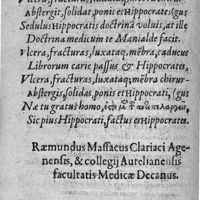 Abstergit, solidat, ponis et Hippocrate, Igus
Sedulus Hippocratis doctrinā voluit, at ille
Doctrina medicum te Manialde facit.
Vlcera, fracturas, luxataq; mēbra, caducus
Librorum carie passus & Hippocrates,
Vlcera, fracturas, luxataq; mēbra chirur-
Abstergis, solidas, ponis et Hippocrati, gus
Na tu gratus homo,
Sic pius Hippocrati, factus es Hippocrates.
Ræmundus Massacus Clariaci Age-
nensis, & collegij Aurelianensis
facultatis Medicæ Decanus.